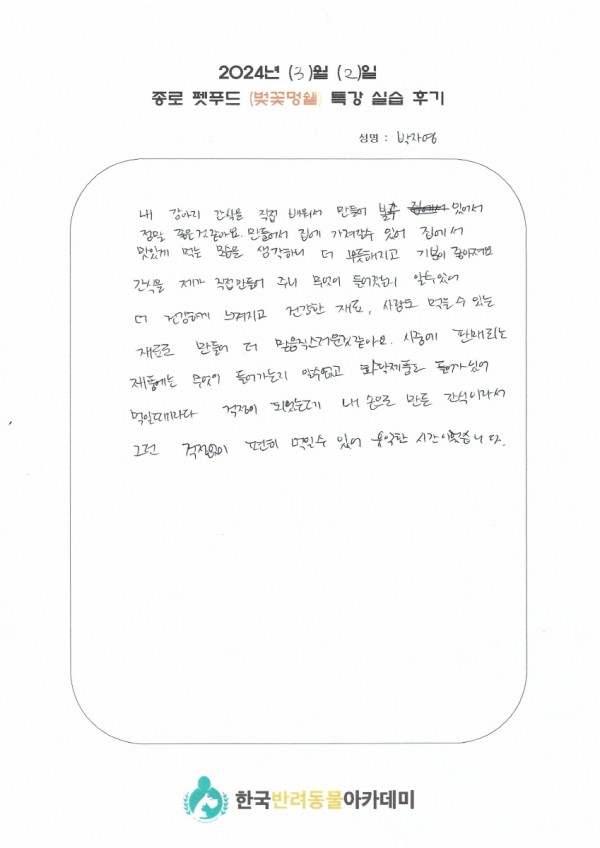 2024년 (3)월 (2)일
종로 펫푸드 (벚꽃멍쉘) 특강 실습 후기
성명 : 박자영
내 강아지 간식을 직접 배워서 만들어 볼수 있어서
정말 좋은것 같아요. 만들어서 집에 가져갈수 있어 집에서
맛있게 먹는 모습을 생각하니 더 뿌듯해지고 기분이 좋아져요
간식을 제가 직접만들어 주니 무엇이 들어갔는지 알수있어
더 건강하게 느껴지고 건강한 재료, 사람도 먹을수 있는
재료로 만들어 더 믿음직스러운것같아요. 시중에 판매되는
제품에는 무엇이 들어가는지 알수없고 화학제품도 들어가있어
먹일때마다 걱정이 되었는데 내 손으로 만든 간식이라서
그런 걱정없이 편히 먹일수 있어 유익한 시간이었습니다.
한국반려동물아카데미